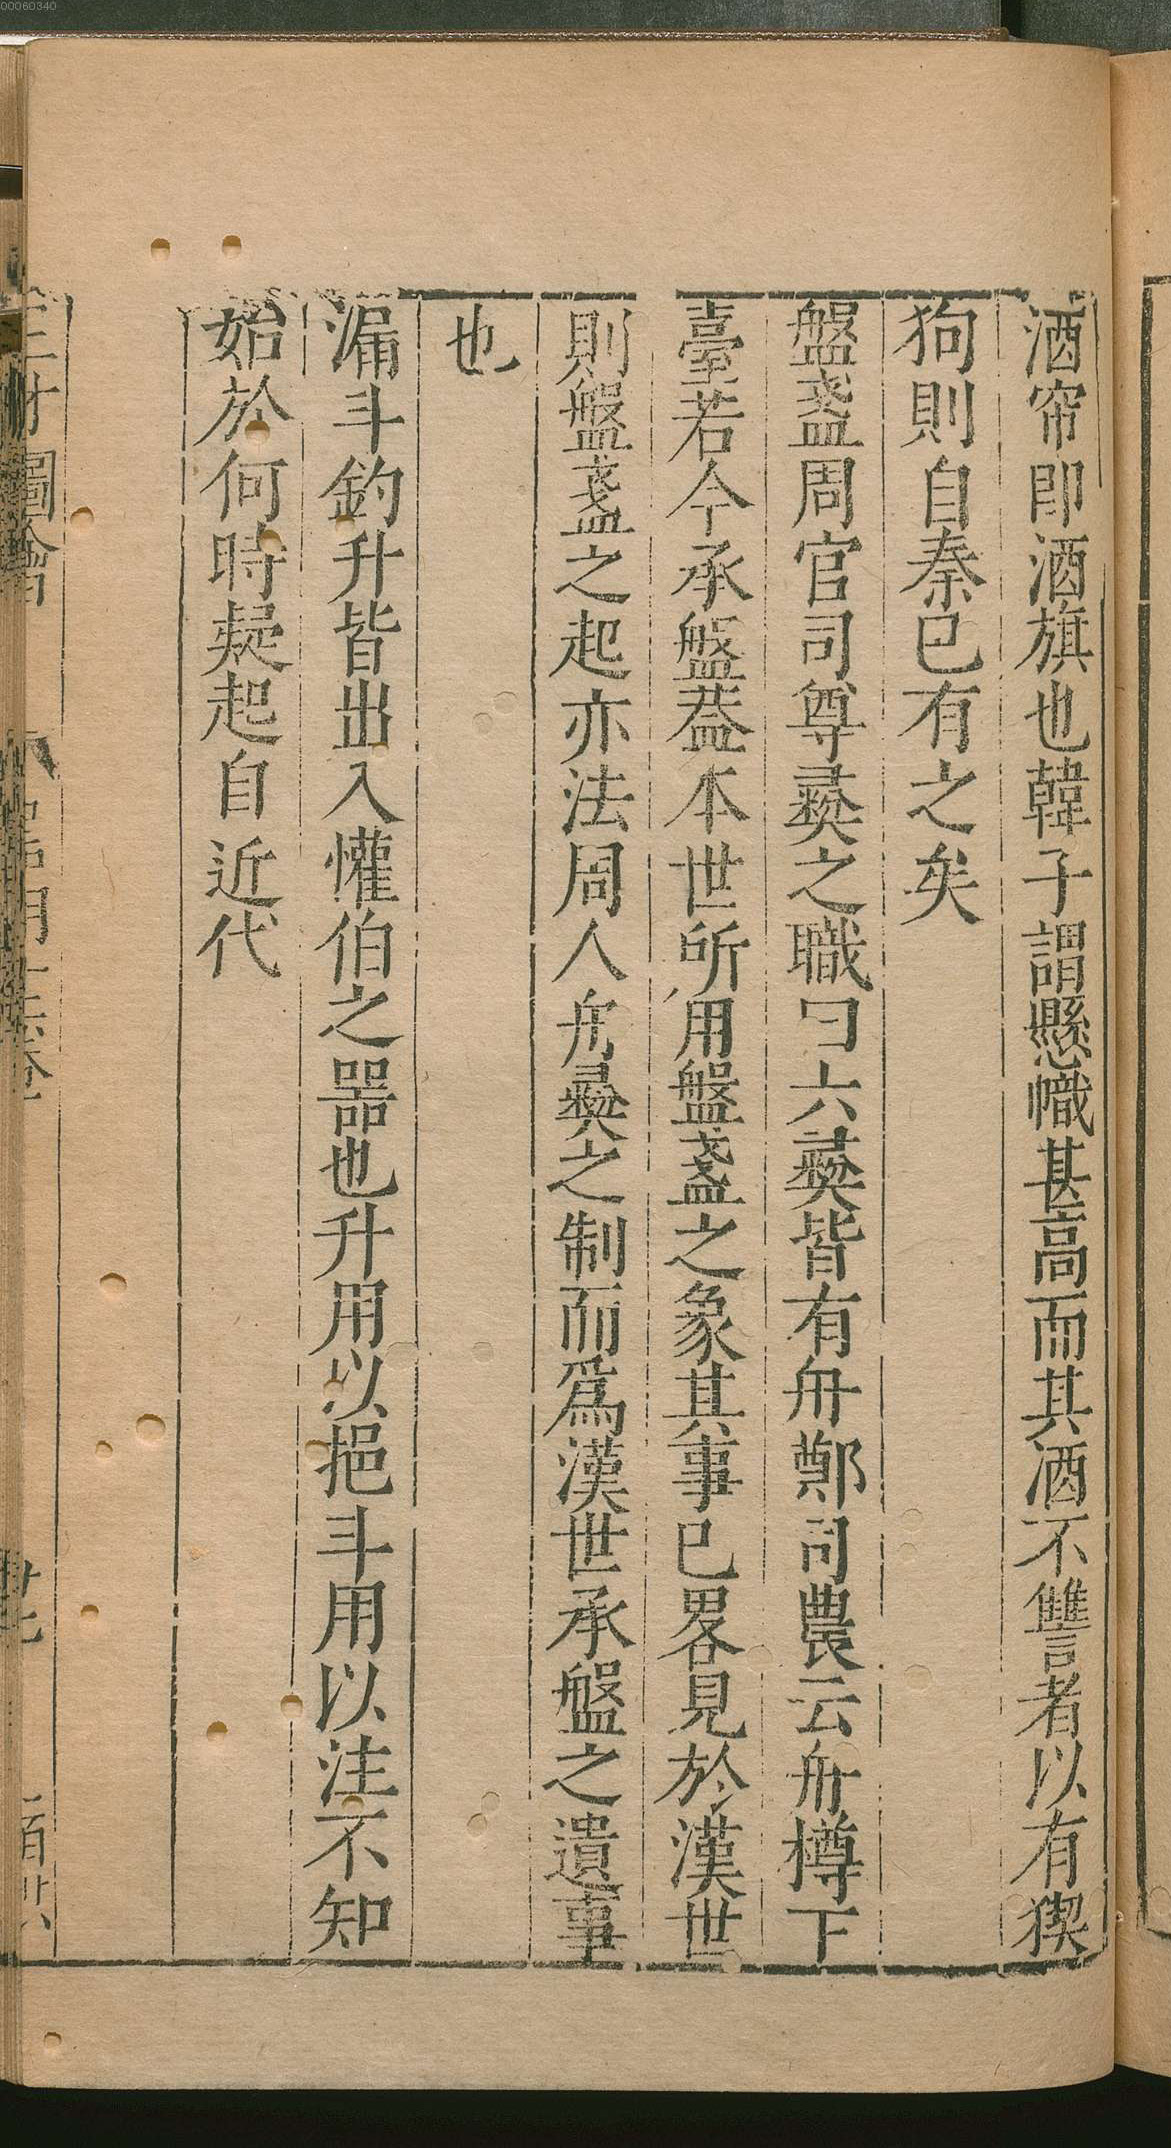 酒帘即酒旗也韓子謂懸幟甚高而其酒不讐者以有猰
狗則自秦巳有之矣
盤盞周官司尊彛之職曰六彛皆有舟鄭司農云舟樽下
臺若今承盤葢本世所用盤盞之象其事巳畧見於漢世
則盤盞之起亦法周人舟彛之制而爲漢世承盤之遺事
也
漏斗釣升皆出入懽伯之器也升用以挹斗用以注不知
始於何時疑起自近代
三才圖會
00060340